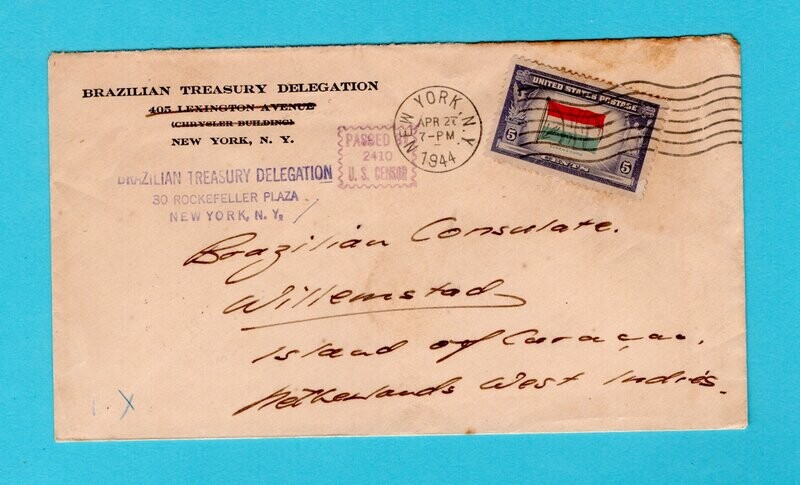 BRAZILIAN TREASURY DELEGATION
405 LEXINGTON AVENUE
(CHRYSLER BUILDING)
NEW YORK, N. Y.
BRAZILIAN TREASURY DELEGATION
30 ROCKEFELLER PLAZA
NEW YORK, N. Y.
PASSED BY
2410
U. S. CENSOR
NEW YORK, N.Y.
APR
7-PM
1944
UNITED STATES POSTAGE
5 5
CENTS
Brazilian Consulate.
Willemstad
Island of Curaçao.
Netherlands West Indies.
X